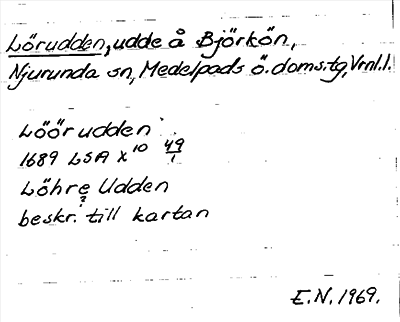 Lörudden, udde å Björkön,
Njurunda sn, Medelpads ö. doms.tg, Vrnl. l.
Löörudden
1689 LSA X¹⁰ 49/1
Löhre Udden
?
beskr. till kartan
E.N. 1969.